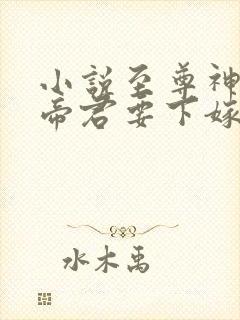 小说至尊神
帝君要下嫁
水木禹